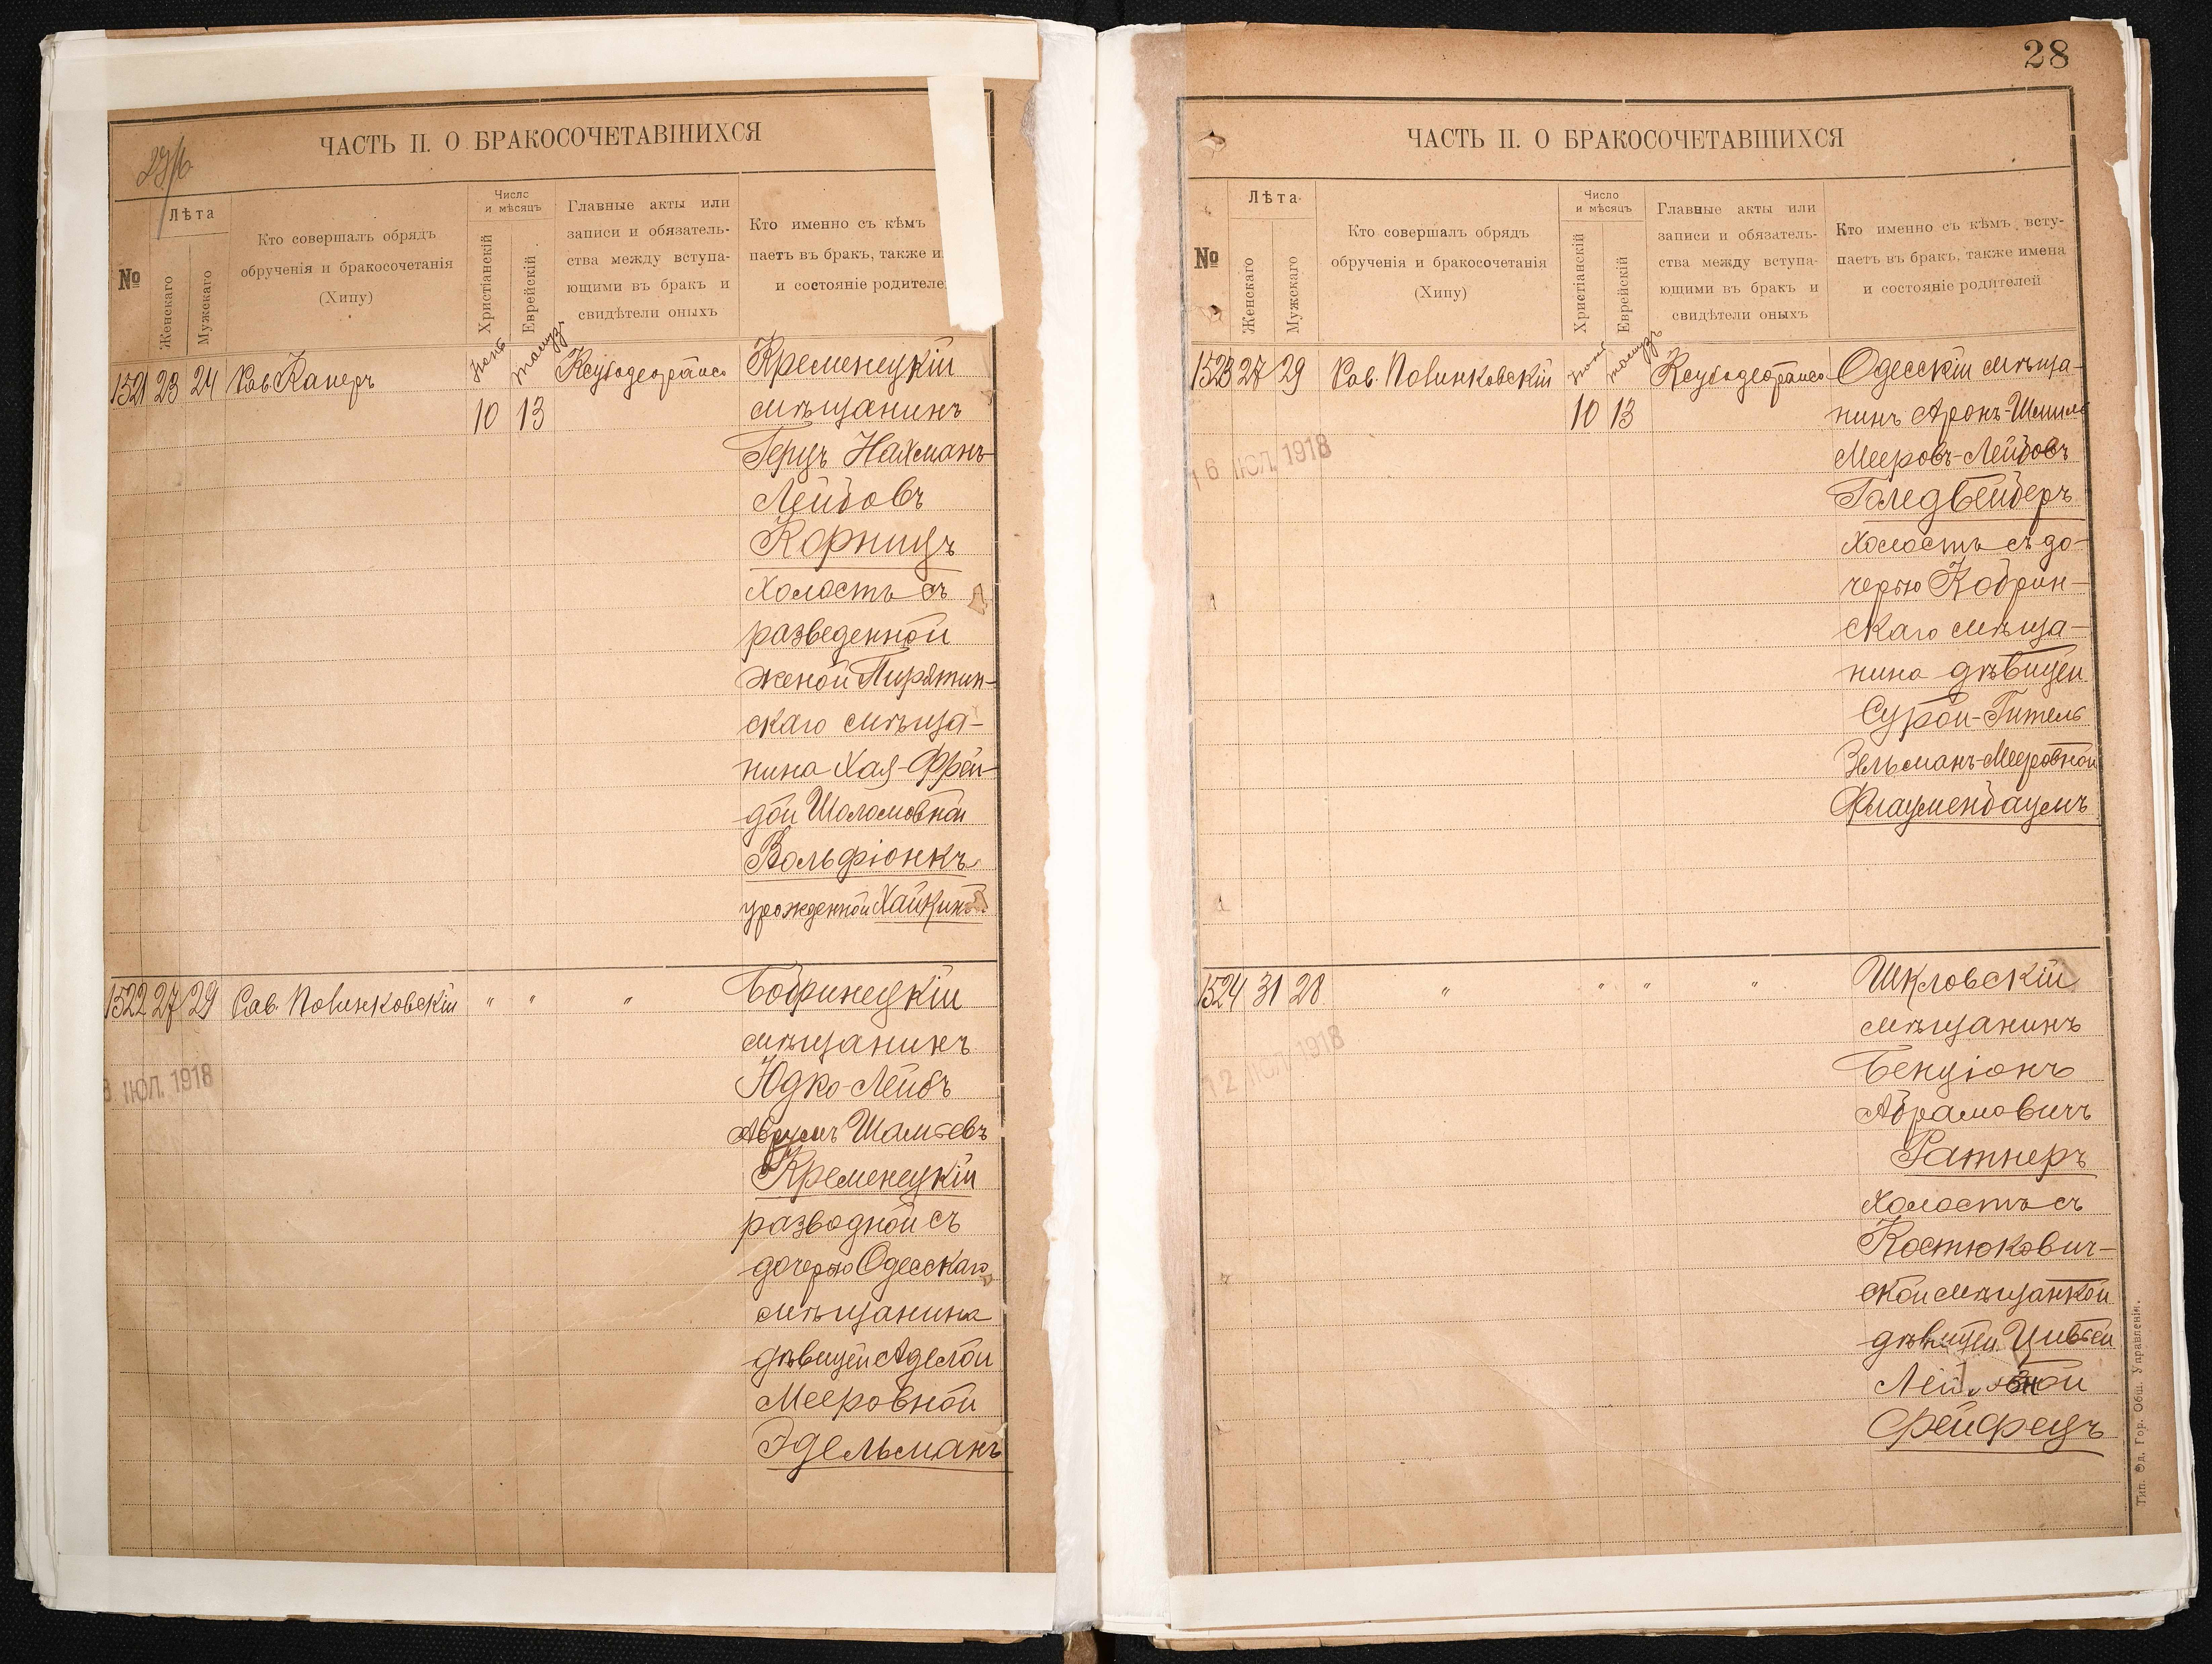 28
ЧАСТЬ II. О БРАКОСОЧЕТАВШИХСЯ
№
Лѣта
Женскаго
Мужскаго
Кто совершалъ обрядъ
обрученія и бракосочетанія
(Хипу)
Число
и мѣсяцъ
Христіанскій
Еврейскій
Главные акты или
записи и обязатель-
ства между вступа-
ющими въ бракъ и
свидѣтели оныхъ
Кто именно съ кѣмъ
паетъ въ бракъ, также и
и состояніе родителе
1521 23 24 Рав. Каперъ
Тамуз
10 13
Кременецкій
мѣщанинъ
Герцъ Нахманъ-
Лейбовъ
Корницъ
холостъ съ
разведенной
женой Пирятин-
скаго мѣща-
нина Хая-Фрей-
дой Шоломовной
Вольфіонкъ
урожденной Хайкин
1522 27 29 Рав. Полинковскій " " "
Бобринецкій
мѣщанинъ
Юдко-Лейбъ
Аврумъ Шамсевъ
Кременецкій
разводной съ
дочерью Одесскаго
мѣщанина
дѣвицей Аделой
Мееровной
Эдельманъ
ІЮЛ. 1918
ЧАСТЬ II. О БРАКОСОЧЕТАВШИХСЯ
№
Лѣта
Женскаго
Мужскаго
Кто совершалъ обрядъ
обрученія и бракосочетанія
(Хипу)
Число
и мѣсяцъ
Христіанскій
Еврейскій
Главные акты или
записи и обязатель-
ства между вступа-
ющими въ бракъ и
свидѣтели оныхъ
Кто именно съ кѣмъ всту-
паетъ въ бракъ, также имена
и состояніе родителей
1523 27 29 Рав. Полинковскій
Тамуз
10 13
16 ІЮЛ. 1918
Одесскій мѣща-
нинъ Аронъ-Шмиль
Мееровъ-Лейбовъ
Голедвейберъ
холостъ съ до-
черью Кобрин-
скаго мѣща-
нина дѣвицей
Сурой-Гитель
Зельманъ-Мееровной
Флаументбаумъ
1524 31 28 " " " "
12 ІЮЛ. 1918
Шкловскій
мѣщанинъ
Бенціонъ
Абрамовичъ
Ратнеръ
холостъ съ
Костюкович-
ской мѣщанкой
дѣвицей Цивьей
Фейфецъ
Тип. Од. Гор. Общ. Управленія.